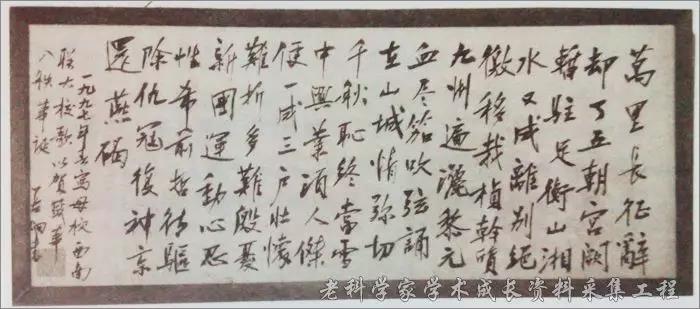 萬里長征辭
却了五朝宮闕
暫駐足衡山湘
水又成離別絕
徼移栽楨幹質
九州遍灑黎元
血尽笳吹弦誦
在山城情彌切
千秋恥終當雪
中興業須人傑
便一成三戶壯懷
難折多難殷憂
新國運動心忍
性希前哲待驅
除仇寇復神京
還燕碣
一九九七年春寫母校西南
联大校歌以賀
八秩華誕
老科学家学术成长资料采集工程